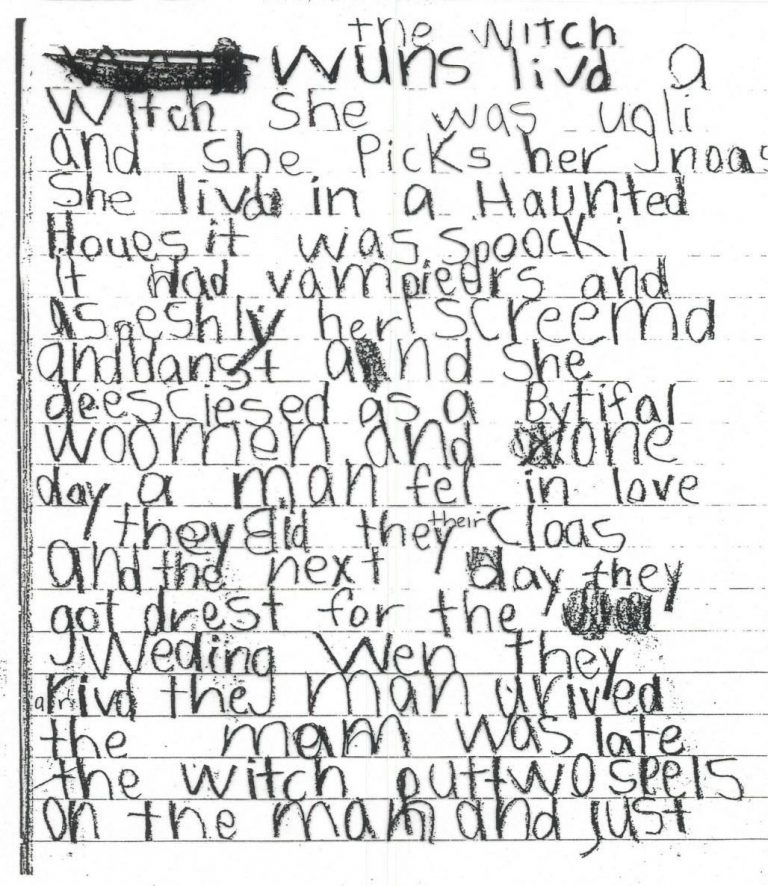 the witch
wuns livd a
witch she was ugli
and she Picks her noas
She livd in a Haunted
Houes it was spoocki
It Had vampiedrs and
aspeshly her screemd
and danst and she
deesciesed as a Bytifal
woomen and one
day a man fel in love
they Bid they their cloas
and the next day they
got drest for the
Weding Wen they
arivd the man urived
the mam was late
the witch put two spels
on the mam and just